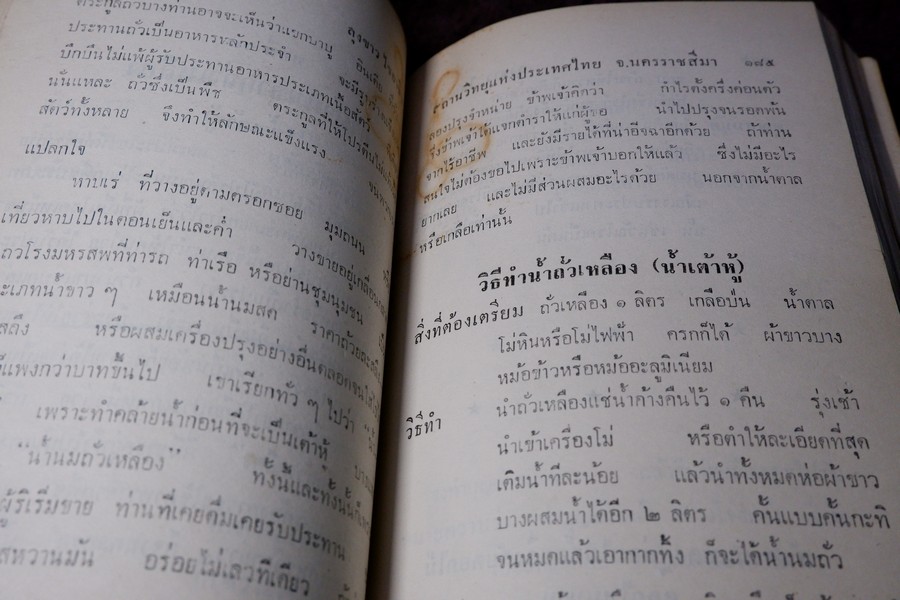 ตระกูลถั่วบางท่านอาจจะเห็นว่าแขกบาบู
ประทานถั่วเป็นอาหารหลักประจำ
บึกบึนไม่แพ้ผู้รับประทานอาหารประเภทเนื้อสัตว์
นั่นแหละ ถั่วซึ่งเป็นพืช ตระกูลที่ให้โปรตีน
สัตว์ทั้งหลาย จึงทำให้ลักษณะแข็งแรง
แปลกใจ
หาบเร่ ที่วางอยู่ตามตรอกซอย มุมถนน
เที่ยวหาบไปในตอนเย็นและค่ำ วางขายอยู่
โรงมหรสพที่ท่ารถ ท่าเรือ หรือย่านชุมนุมชน
น้ำขาว ๆ เหมือนน้ำนมสด
หรือผสมเครื่องปรุงอย่างอื่นตลอดจน
แพงกว่าบาทขึ้นไป เขาเรียกทั่ว ๆ ไปว่า
เพราะทำคล้ายน้ำก่อนที่จะเป็นเต้าหู้
“น้ำนมถั่วเหลือง” ทั้งนี้และทั้งนั้น
ผู้ริเริ่มขาย ท่านที่เคยดื่มเคยรับประทาน
หวานมัน อร่อยไม่เลวทีเดียว
สถานวิทยุแห่งประเทศไทย จ.นครราชสีมา ๑๘๕
ลองปรุงจำหน่าย ข้าพเจ้าคิดว่า กำไรตั้งครึ่งค่อนตัว
ซึ่งข้าพเจ้าได้แจกตำราให้แก่ผู้ขอ นำไปปรุงจนรอดพ้น
จากไร้อาชีพ และยังมีรายได้ที่น่าอิจฉาอีกด้วย ถ้าท่าน
สนใจไม่ต้องขอไปเพราะข้าพเจ้าบอกให้แล้ว ซึ่งไม่มีอะไร
ยากเลย และไม่มีส่วนผสมอะไรด้วย นอกจากน้ำตาล
หรือเกลือเท่านั้น
วิธีทำน้ำถั่วเหลือง (น้ำเต้าหู้)
สิ่งที่ต้องเตรียม ถั่วเหลือง ๑ ลิตร เกลือป่น น้ำตาล
โม่หินหรือโม่ไฟฟ้า ครกก็ได้ ผ้าขาวบาง
หม้อข้าวหรือหม้ออะลูมิเนียม
วิธีทำ นำถั่วเหลืองแช่น้ำค้างคืนไว้ ๑ คืน รุ่งเช้า
นำเข้าเครื่องโม่ หรือตำให้ละเอียดที่สุด
เติมน้ำทีละน้อย แล้วนำทั้งหมดห่อผ้าขาว
บางผสมน้ำได้อีก ๒ ลิตร คั้นแบบคั้นกะทิ
จนหมดแล้วเอากากทิ้ง ก็จะได้น้ำนมถั่ว